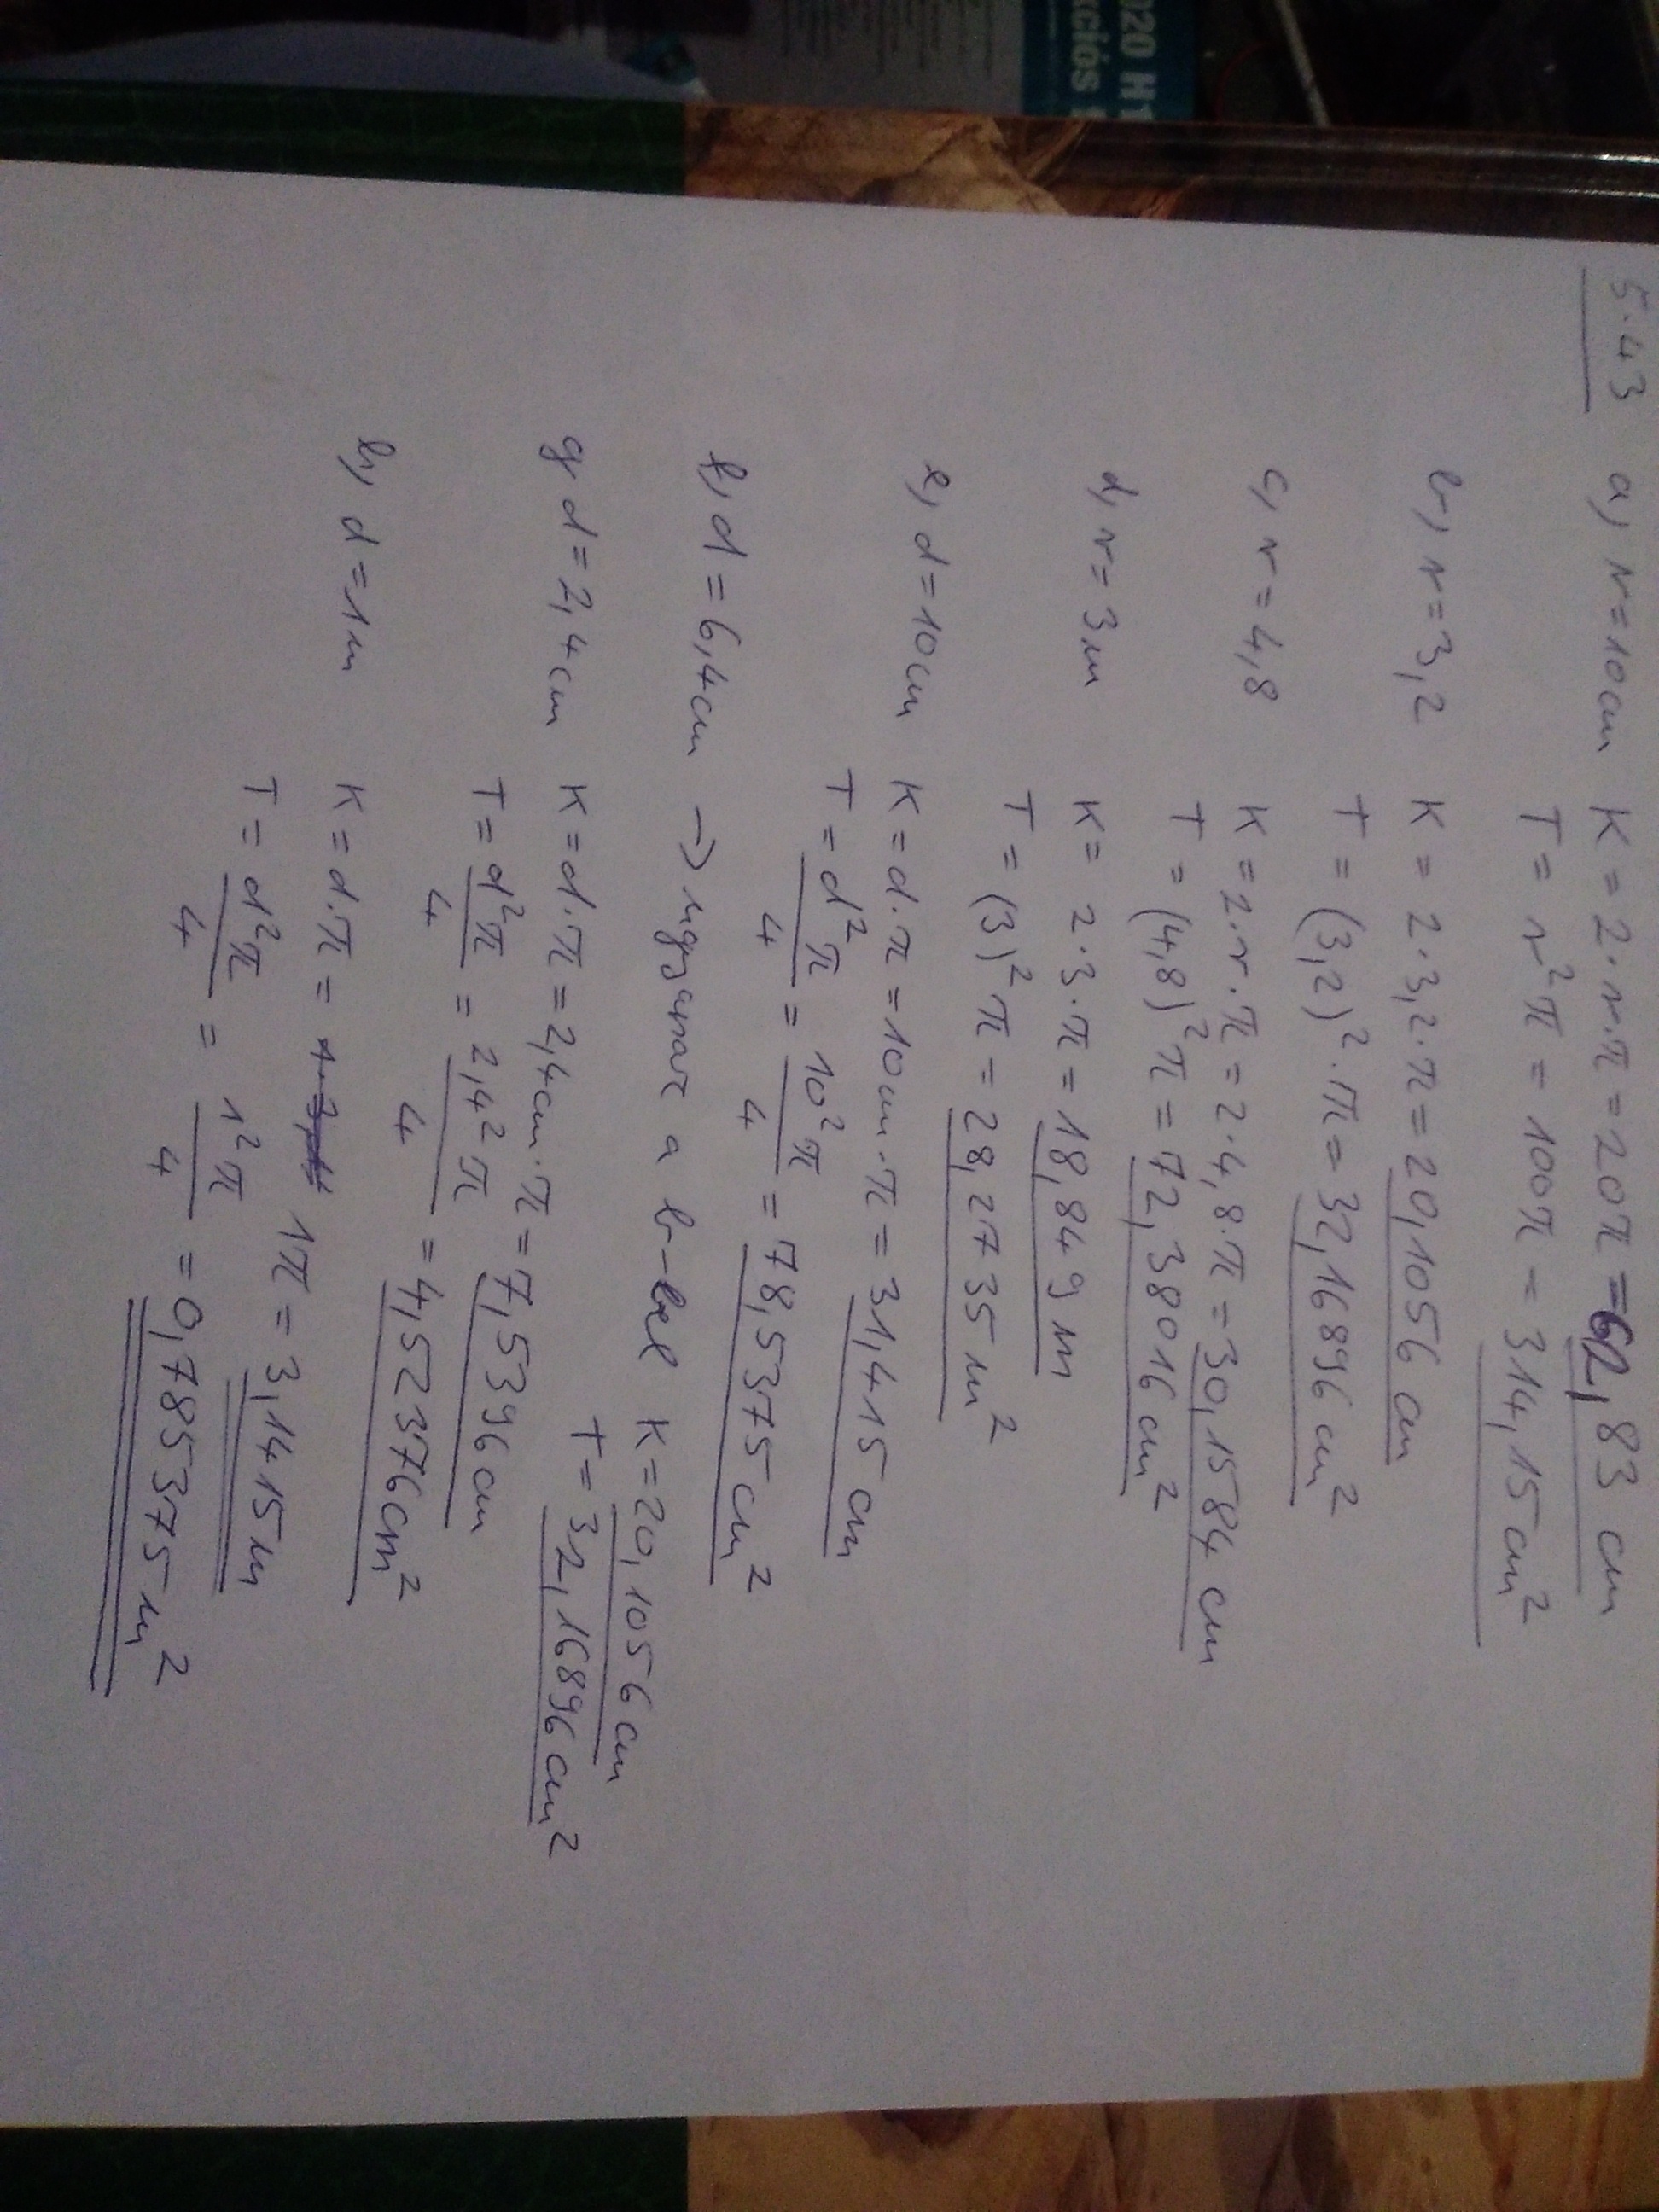 020 H1
kciós
5.43 a, r=10cm K=2·r·π=20π=62,83 cm
T=r²π=100π=314,15cm²
b, r=3,2 K=2·3,2·π=20,1056 cm
T=(3,2)²·π=32,16896cm²
c, r=4,8 K=2·r·π=2·4,8·π=30,1584 cm
T=(4,8)²π=72,38016cm²
d, r=3m K=2·3·π=18,849m
T=(3)²π=28,2735m²
e, d=10cm K=d·π=10cm·π=31,415cm
T=d²π/4=10²π/4=78,5375cm²
f, d=6,4cm → ugyanaz a b-vel K=20,1056cm
T=32,16896cm²
g, d=2,4cm K=d·π=2,4cm·π=7,5396cm
T=d²π/4=2,4²π/4=4,52376cm²
h, d=1m K=d·π= 1π=3,1415m
T=d²π/4=1²π/4=0,785375m²